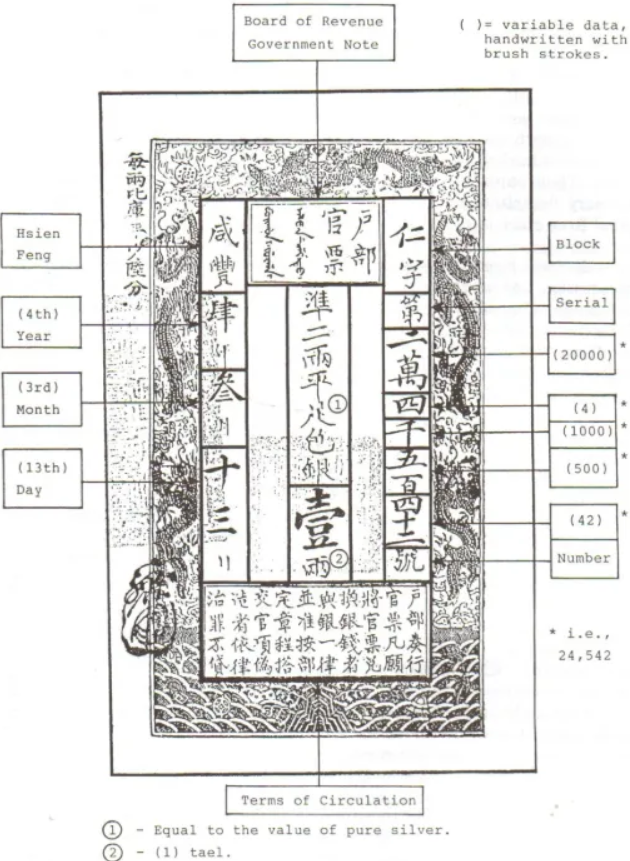 Board of Revenue
Government Note
( )= variable data,
handwritten with
brush strokes.
每兩比庫平少陸分
戶部
官票
仁字第二萬四千五百四十二號
準二兩平足色銀①
壹兩②
咸豐肆年叁月十三日
戶部奏行
官票凡願
將官票兌
換銀錢者
與銀一律
並准按部
定章程搭
交官項偽
造者依律
治罪不貸
Hsien
Feng
(4th)
Year
(3rd)
Month
(13th)
Day
Block
Serial
(20000) *
(4) *
(1000) *
(500) *
(42) *
Number
* i.e.,
24,542
Terms of Circulation
① - Equal to the value of pure silver.
② - (1) tael.